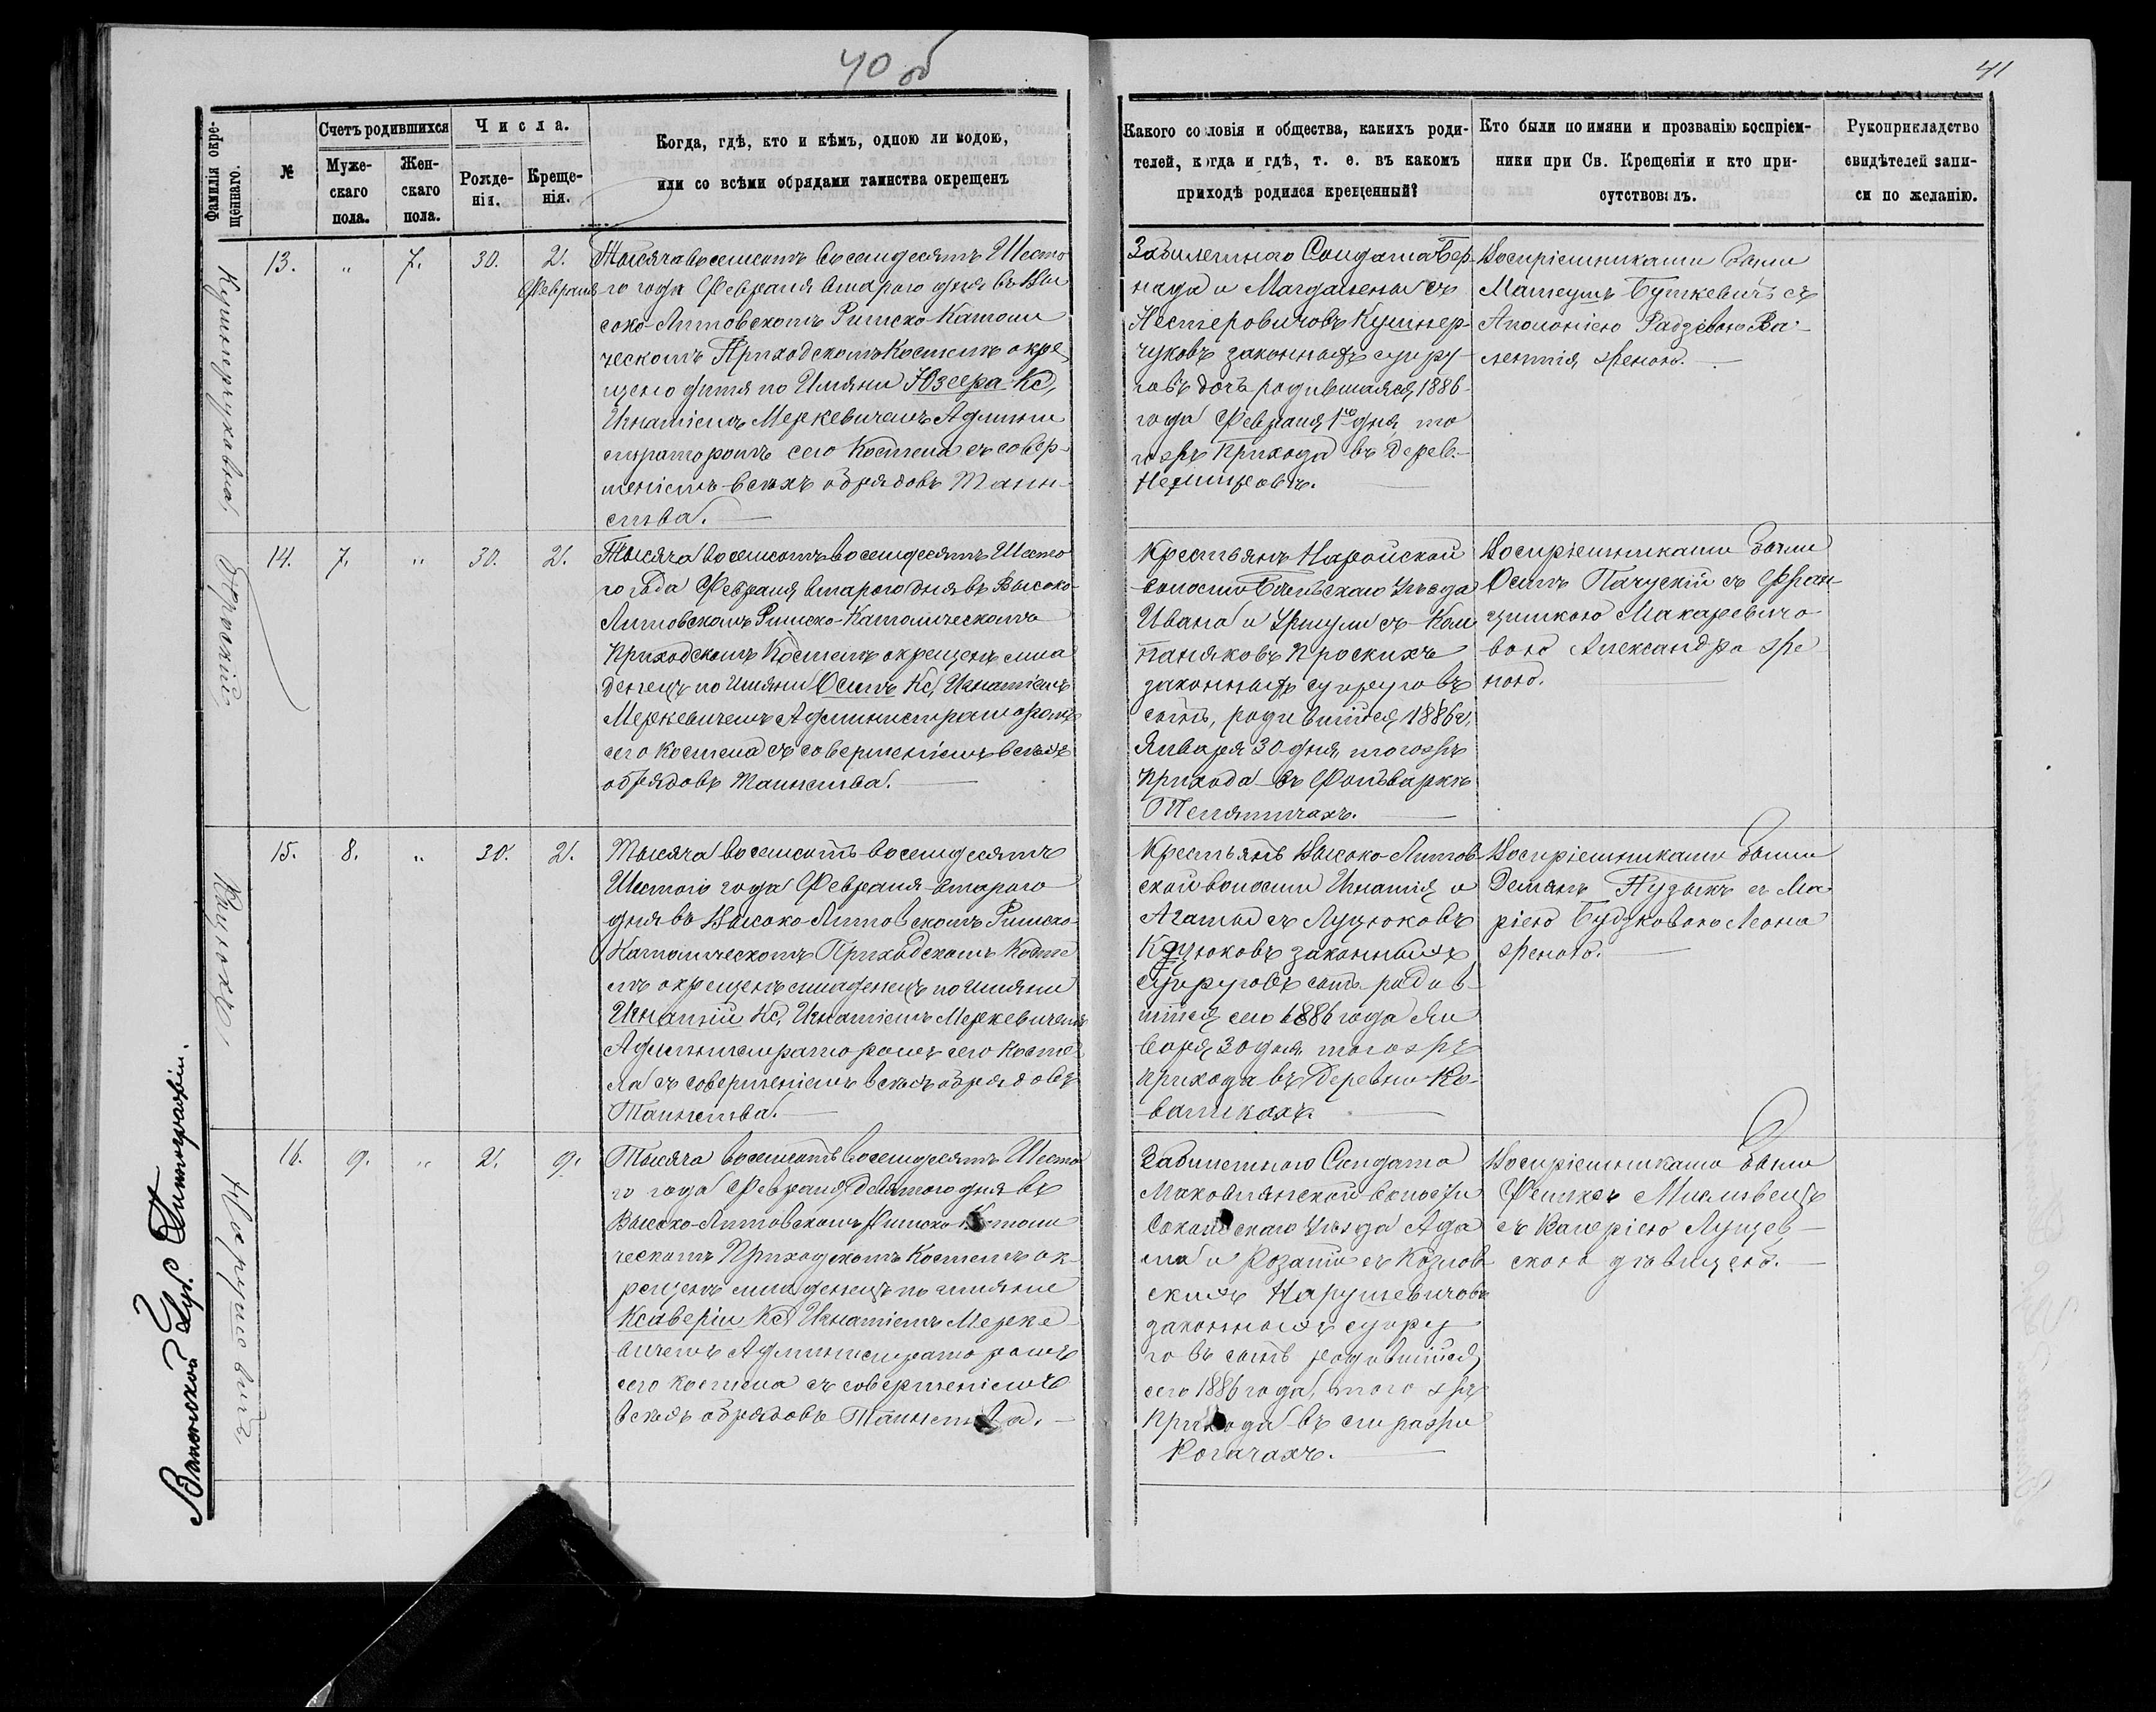 40 об
41
Фамилія окре-
щеннаго.
№
Счетъ родившихся
Муже-
скаго
пола.
Жен-
скаго
пола.
Числа.
Рожде-
нія.
Креще-
нія.
Когда, гдѣ, кто и кѣмъ, одною ли водою,
или со всѣми обрядами таинства окрещенъ
Какого сословія и общества, какихъ роди-
телей, когда и гдѣ, т. е. въ какомъ
приходѣ родился крещенный?
Кто были по имяни и прозванію воспріем-
ники при Св. Крещеніи и кто при-
сутствовалъ.
Рукоприкладство
свидѣтелей запи-
си по желанію.
13.
"
7.
30.
2.
Февраля
Тысяча восемсотъ восемдесятъ Шесто
го года Февраля втараго дня въ Вы
соко-Литовскомъ Римско-Катали
ческомъ Приходскомъ Костелѣ окре
щено дитя по Имяни Юзефа Кс,
Игнатіемъ Меркевичемъ Админи
страторомъ сего Костела съ совер-
шеніемъ всѣхъ обрядовъ Таин-
ства.
Забилетнаго Солдата Бер-
нада и Магдалены съ
Нестеровичовъ Кушнер-
чуковъ законныхъ супру-
говъ дочъ родившаяся 1886
года Февраля 1го дня то
гожъ Прихода въ Дерев.
Воспріемниками были
Матеушъ Буткевичъ съ
Аполоніею Радзевою Ва-
лентія женою.
Опрокій
14.
7.
"
30.
2.
Тысяча восемсотъ восемдесятъ Шесто
го года Февраля втараго дня въ Высоко-
Литовскомъ Римско-Каталическомъ
Приходскомъ Костелѣ окрещенъ мла
денецъ по Имяни Осипъ Кс, Игнатіемъ
Меркевичемъ Администраторомъ
сего Костела съ совершеніемъ всѣхъ
обрядовъ Таинства.
Крестьянъ Наройской
волости Бѣльскаго Уѣзда
Ивана и Уршули съ Кам
паняковъ Проскихъ
законныхъ супруговъ
сынъ, родившійся 1886 г,
Января 30 дня тогожъ
прихода въ Фольваркѣ
Воспріемниками были
Осипъ Пачускій съ Фран
цишкою Макаревичо
вою Александра же
ною.
Куцюкъ
15.
8.
"
30.
2.
Тысяча восемсотъ восемдесятъ
Шестого года Февраля втараго
дня въ Высоко-Литовскомъ Римско-
Каталическомъ Приходскомъ Косте
лѣ окрещенъ младенецъ по Имяни
Игнатій Кс, Игнатіемъ Меркевичемъ
Администраторомъ сего Косте
ла съ совершеніемъ всѣхъ обрядовъ
Таинства.
Крестьянъ Высоко-Литов
ской волости Игнатія и
Агаты съ Луцюковъ
Куцюковъ законныхъ
супруговъ сынъ родив
шійся сего 1886 года Ян
варя 30 дня тогожъ
прихода въ Деревни Ко-
Воспріемниками были
Демянъ Пузыкъ съ Ма
ріею Будзковою Леона
женою.
Нарушевичъ
16.
9.
"
2.
9.
Тысяча восемсотъ восемдесятъ Шесто
го года Февраля Девятого дня въ
Высоко-Литовскомъ Римско-Катали
ческомъ Приходскомъ Костелѣ ок-
рещенъ младенецъ по имяни
Ксаверіи Кс, Игнатіемъ Мерке
вичемъ Администраторомъ
сего Костела съ совершеніемъ
всѣхъ обрядовъ Таинства.
Забилетного Солдата
Маковлянской волости
Сокольскаго Уѣзда Ада
ма и Розаліи съ Козлов
скихъ Нарушевичовъ
законныхъ супру
говъ сынъ родившійся
сего 1886 года, того жъ
прихода въ стражи
Рогачахъ.
Воспріемниками были
съ Валеріею Лущев
скою дѣвицею.